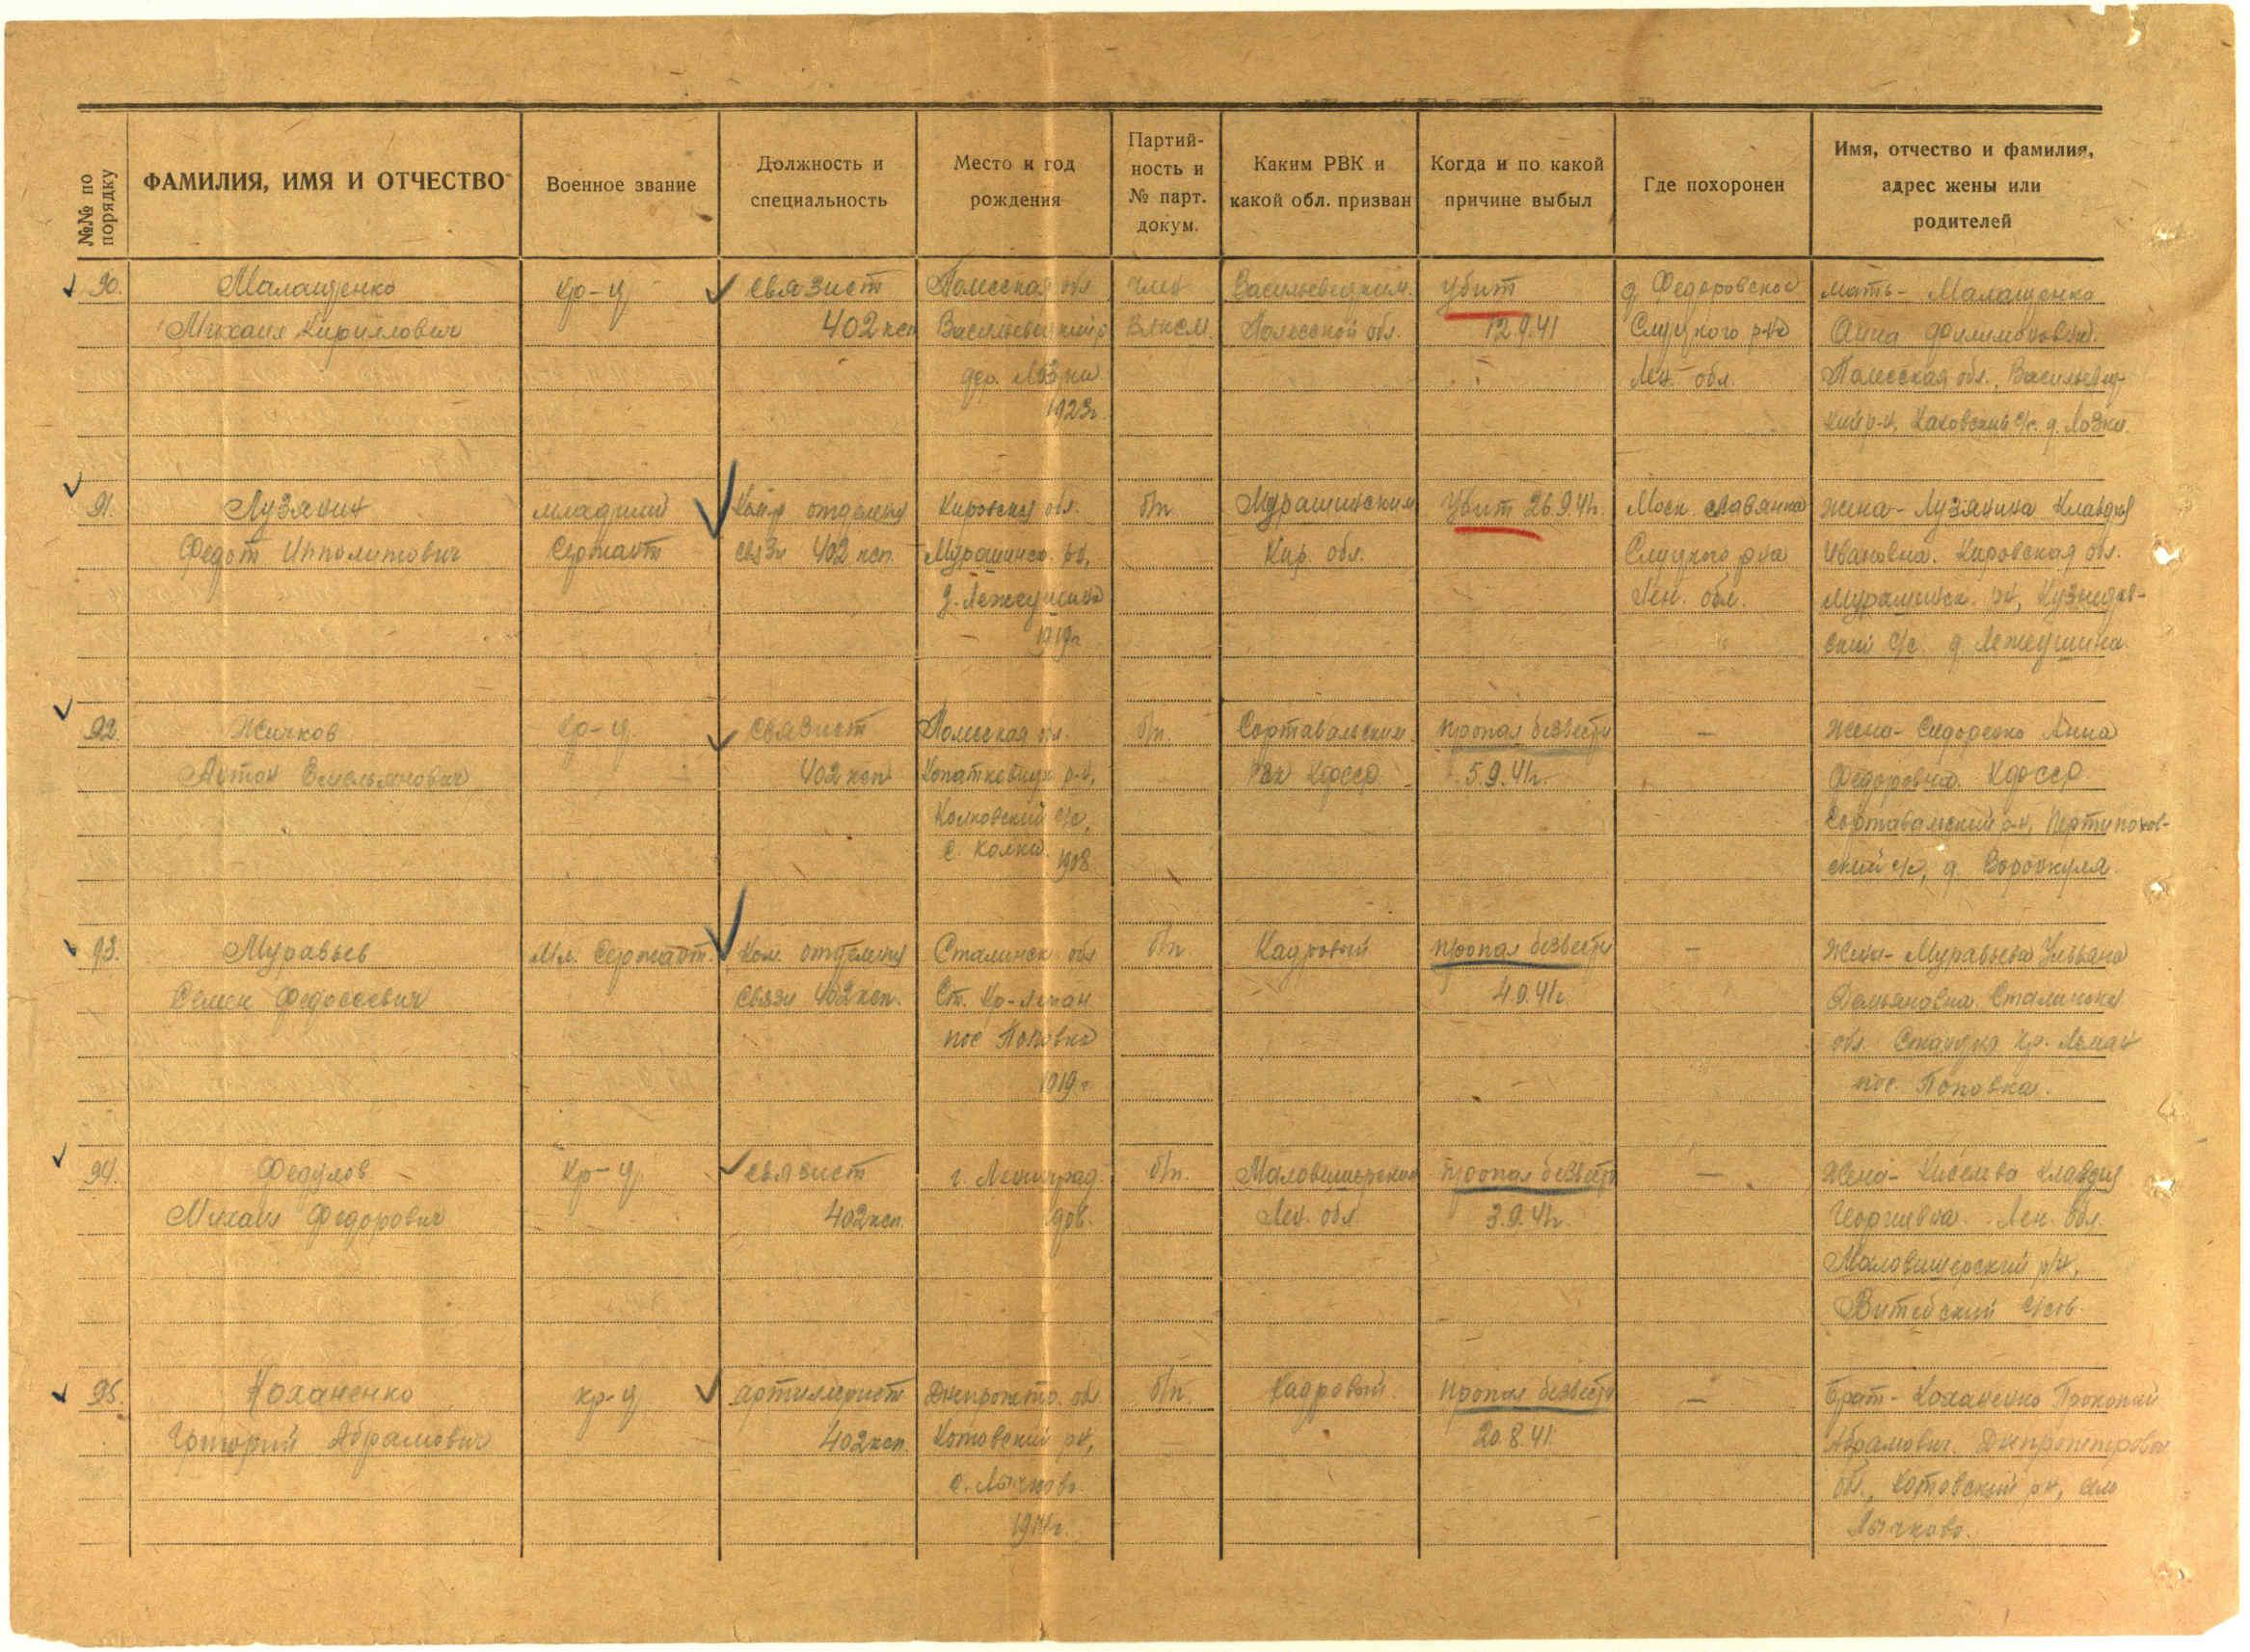 №№ по порядку
ФАМИЛИЯ, ИМЯ И ОТЧЕСТВО
Военное звание
Должность и
специальность
Место и год
рождения
Партий-
ность и
№ парт.
докум.
Каким РВК и
какой обл. призван
Когда и по какой
причине выбыл
Где похоронен
Имя, отчество и фамилия,
адрес жены или
родителей
90.
Малащенко
Михаил Кириллович
кр-ц
связист
402 ксп
Полесская обл
Васильевичский р
дер.
1923г.
член
ВЛКСМ.
Васильевичским.
Полесской обл.
Убит
12.9.41
д Федоровское
Слуцкого р-на
Лен. обл.
мать- Малащенко
Анна Филимоновна.
Полесская обл., Васильевич-
кий р-н, с/с. д. Лозки.
91.
Лузянин
Федот Ипполитович
младший
Сержант
Ком отделения
связи 402 ксп.
Кировская обл.
Мурашинск. рн,
д. Лежеушина
1919г
б/п
Мурашинским
Кир. обл.
Убит 26.9.41г.
Моск. славянка
Слуцкого р-на
Лен. обл.
жена- Лузянина Клавдия
Ивановна. Кировская обл.
Мурашинск. рн, Кузнецов-
ский с/с. д. Лежеушина.
92.
Жичков
Антон Емельянович
кр-ц.
связист
402 ксп
Полесская обл.
Копаткевичск р-н,
Колковский с/с,
с. Колки. 1908
б/п.
Сортавальским
рвк КФССР.
пропал безвести
5.9.41г.
—
Жена- Сидоренко Анна
Федоровна. КФССР
Сортавальский р-н,
ский с/с, д.
93.
Муравьев
Семен Федосеевич
Мл. Сержант.
Ком. отделения
связи 402 ксп.
Сталинск. обл
Ст. Кр-Лиман
пос Поповка
1919г
б/п
Кадровый
пропал безвести
4.9.41г.
—
Жена- Муравьева Ульяна
Демьяновна. Сталинская
обл. Станция Кр. Лиман
пос. Поповка.
94.
Федулов
Михаил Федорович
кр-ц.
связист
402 ксп.
г. Ленинград.
906.
б/п.
Маловишерским
Лен. обл
пропал безвести
3.9.41г
—
Жена- Киселева Клавдия
Георгиевна. Лен. обл.
Маловишерский р/н,
Витебский с/сов.
95.
Коханенко
Григорий Абрамович
кр-ц
артилерист
402 ксп.
Днепропетр. обл
Котовский рн,
с. Лычково
б/п
Кадровый.
пропал безвести
20.8.41
—
Брат- Коханенко Прокопий
Абрамович. Днепропетровск
обл., Котовский рн, село
Лычково.